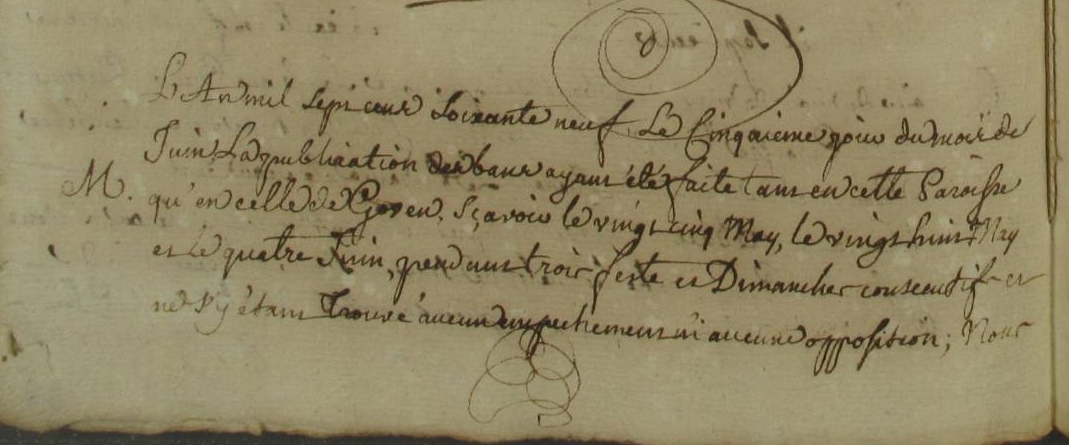 L'An mil sept cent soixante neuf, Le Cinquieme jour du mois de
Juin La publication des bans ayant été faite tant en cette Paroisse
M. qu'en celle de Goven, Sçavoir le vingt cinq May, le vingt huit May
et le quatre Juin, pendant trois feste et Dimanches consecutifs et
ne s'y étant trouvé aucun empechement ni aucune opposition; Nous